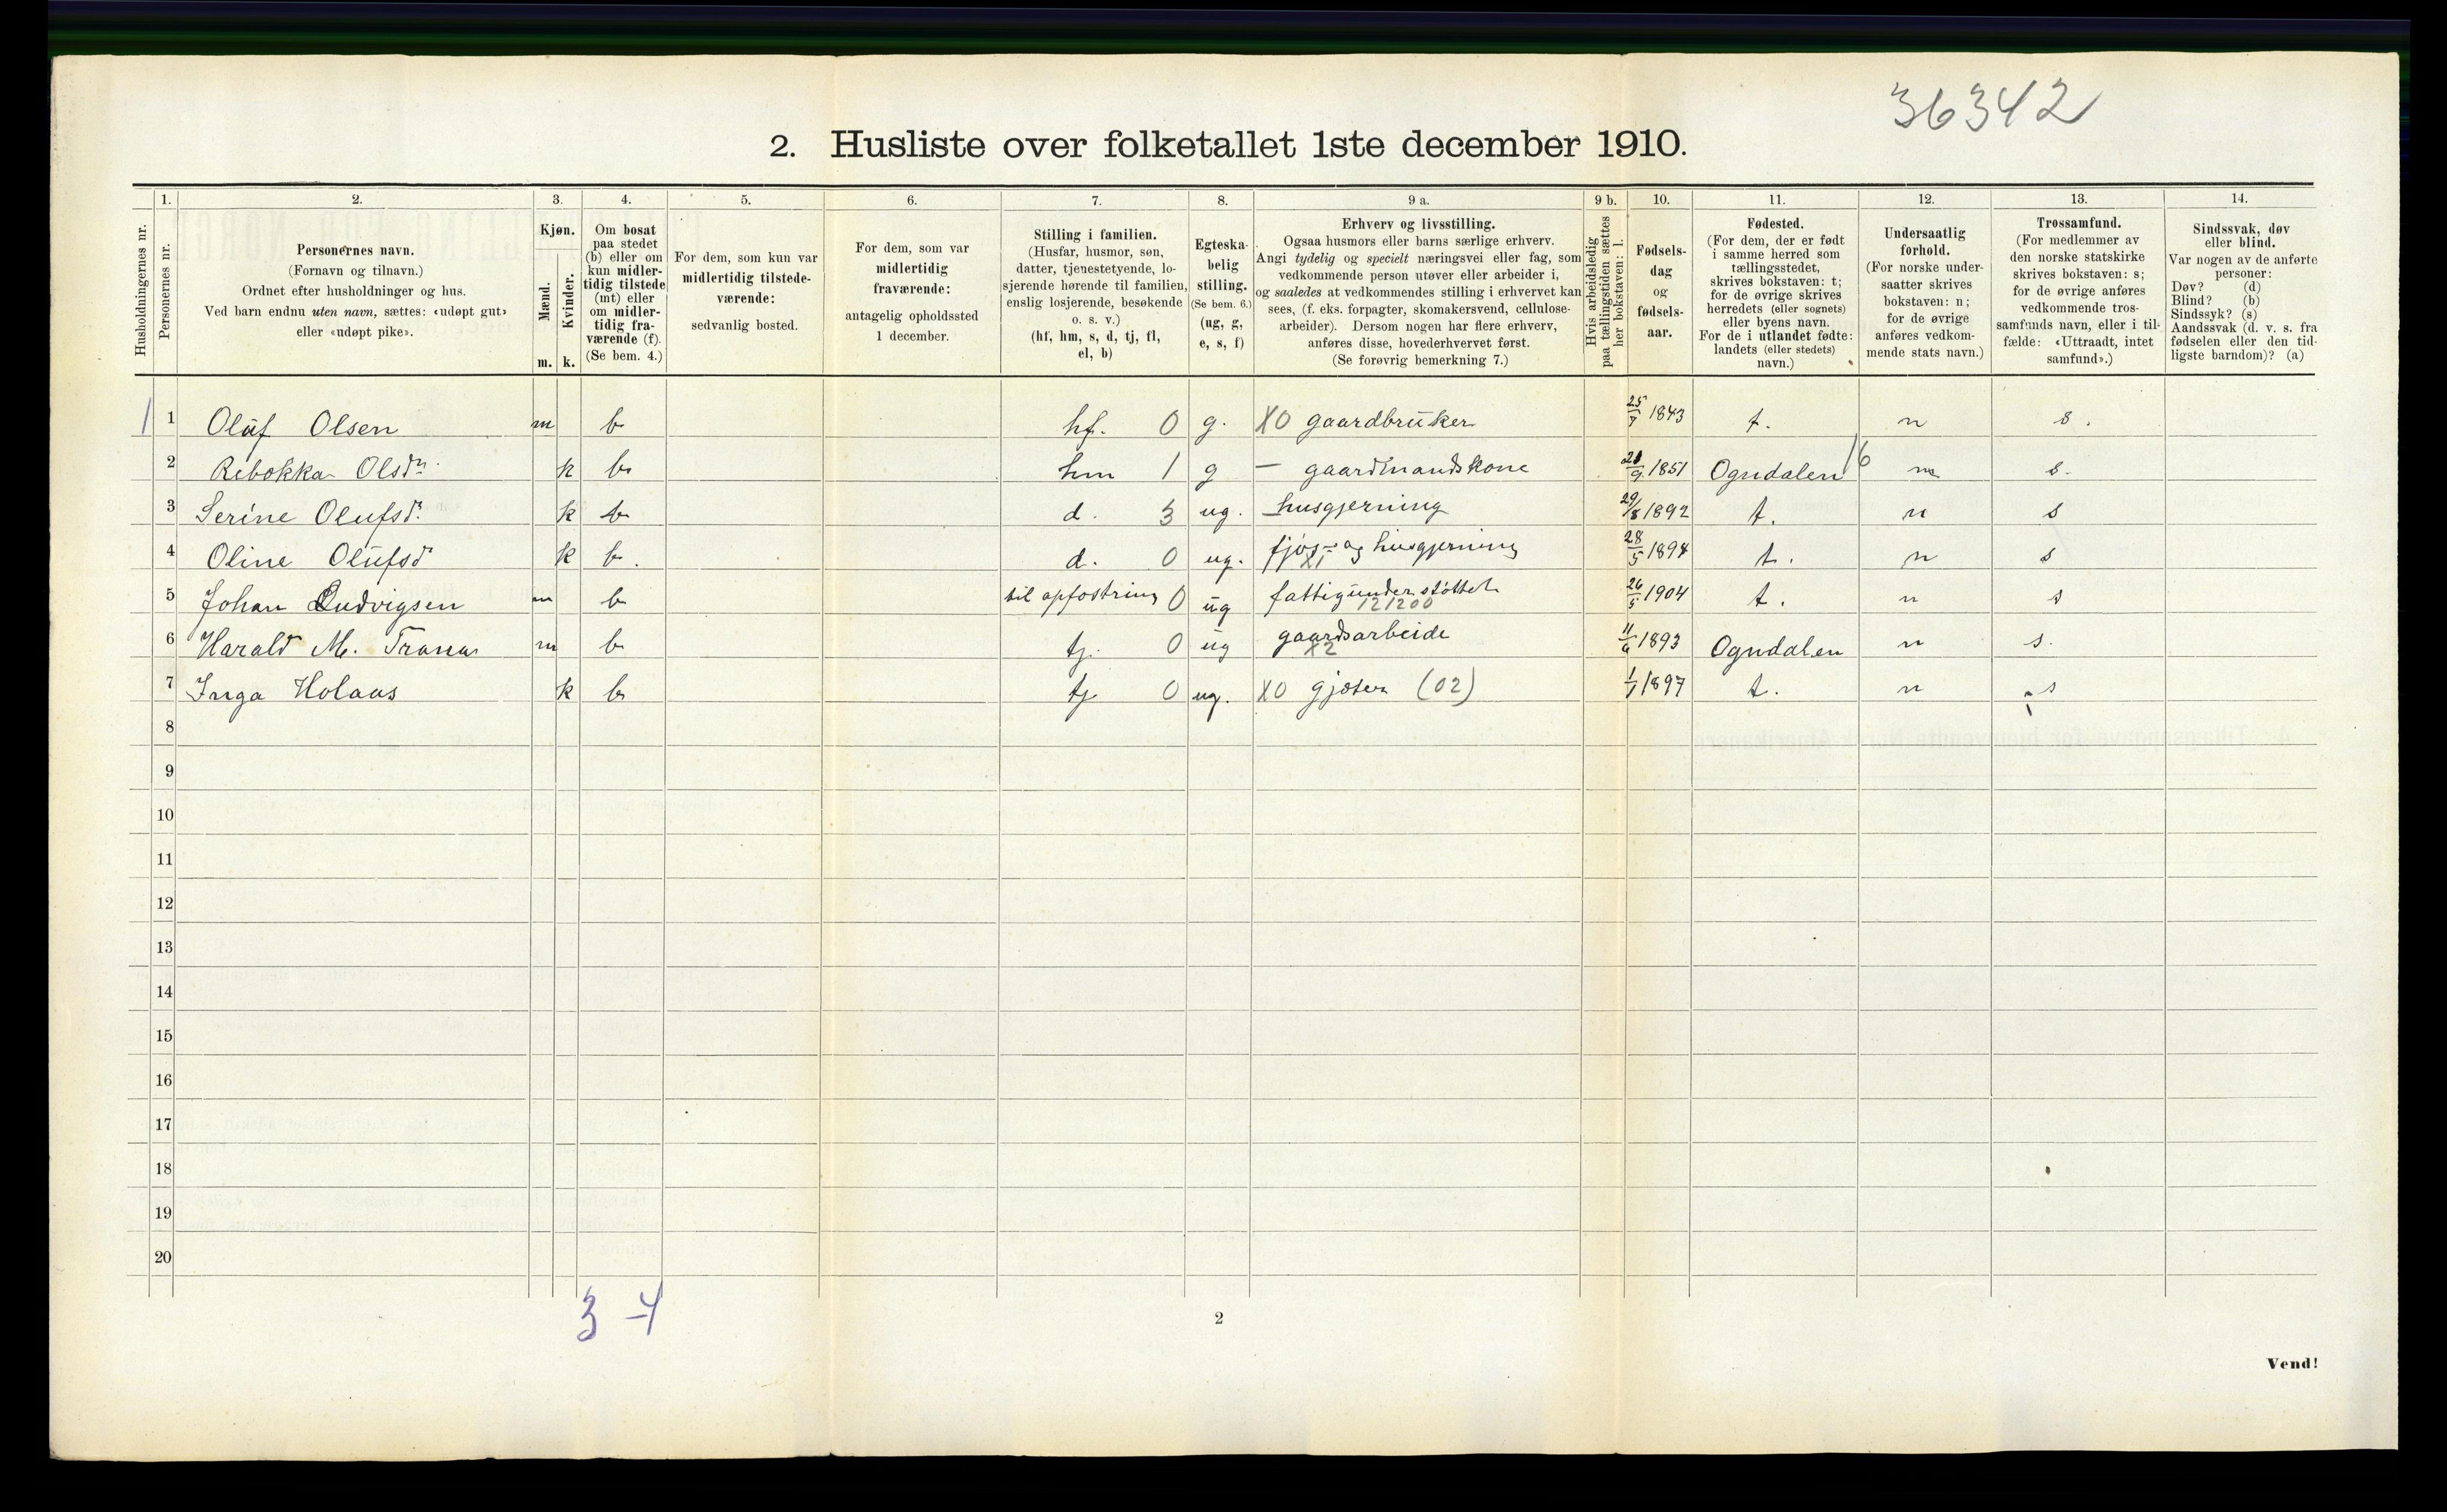 36342
2. Husliste over folketallet 1ste december 1910.
Husholdningernes nr.
1.
Personernes nr.
2.
Personernes navn.
(Fornavn og tilnavn.)
Ordnet efter husholdninger og hus.
Ved barn endnu uten navn, sættes: «udøpt gut»
eller «udøpt pike».
3.
Kjøn.
Mænd.
m.
Kvinder.
k.
4.
Om bosat
paa stedet
(b) eller om
kun midler-
tidig tilstede
(mt) eller
om midler-
tidig fra-
værende (f).
(Se bem. 4.)
5.
For dem, som kun var
midlertidig tilstede-
værende:
sedvanlig bosted.
6.
For dem, som var
midlertidig
fraværende:
antagelig opholdssted
1 december.
7.
Stilling i familien.
(Husfar, husmor, søn,
datter, tjenestetyende, lo-
sjerende hørende til familien,
enslig losjerende, besøkende
o. s. v.)
(hf, hm, s, d, tj, fl,
el, b)
8.
Egteska-
belig
stilling.
(Se bem. 6.)
(ug, g,
e, s, f)
9 a.
Erhverv og livsstilling.
Ogsaa husmors eller barns særlige erhverv.
Angi tydelig og specielt næringsvei eller fag, som
vedkommende person utøver eller arbeider i,
og saaledes at vedkommendes stilling i erhvervet kan
sees, (f. eks. forpagter, skomakersvend, cellulose-
arbeider). Dersom nogen har flere erhverv,
anføres disse, hovederhvervet først.
(Se forøvrig bemerkning 7.)
9 b.
Hvis arbeidsledig
paa tællingstiden sættes
her bokstaven: l.
10.
Fødsels-
dag
og
fødsels-
aar.
11.
Fødested.
(For dem, der er født
i samme herred som
tællingsstedet,
skrives bokstaven: t;
for de øvrige skrives
herredets (eller sognets)
eller byens navn.
For de i utlandet fødte:
landets (eller stedets)
navn.)
12.
Undersaatlig
forhold.
(For norske under-
saatter skrives
bokstaven: n;
for de øvrige
anføres vedkom-
mende stats navn.)
13.
Trossamfund.
(For medlemmer av
den norske statskirke
skrives bokstaven: s;
for de øvrige anføres
vedkommende tros-
samfunds navn, eller i til-
fælde: «Uttraadt, intet
samfund».)
14.
Sindssvak, døv
eller blind.
Var nogen av de anførte
personer:
Døv? (d)
Blind? (b)
Sindssyk? (s)
Aandssvak (d. v. s. fra
fødselen eller den tid-
ligste barndom)? (a)
1 1 Oluf Olsen m b hf. 0 g. X0 gaardbruker 25/7 1843 t. n s.
2 Rebekka Olsdtr. k b hm 1 g — gaardmandskone 21/9 1851 Ogndalen 16 n s.
3 Serine Olufsd. k b d. 3 ug. husgjerning 29/8 1892 t. n s
4 Oline Olufsd k b. d. 0 ug. fjøs- og husgjerning X1 28/5 1894 t. n s
5 Johan Ludvigsen m b til opfostring 0 ug fattigunderstøttet 121200 26/5 1904 t. n s
6 Harald M. Trana m b tj. 0 ug gaardsarbeide X2 11/6 1893 Ogndalen n s.
7 Inga Holaas k b tj 0 ug. X0 gjæter (02) 1/1 1897 t. n s
8
9
10
11
12
13
14
15
16
17
18
19
20
3 - 4
2
Vend!